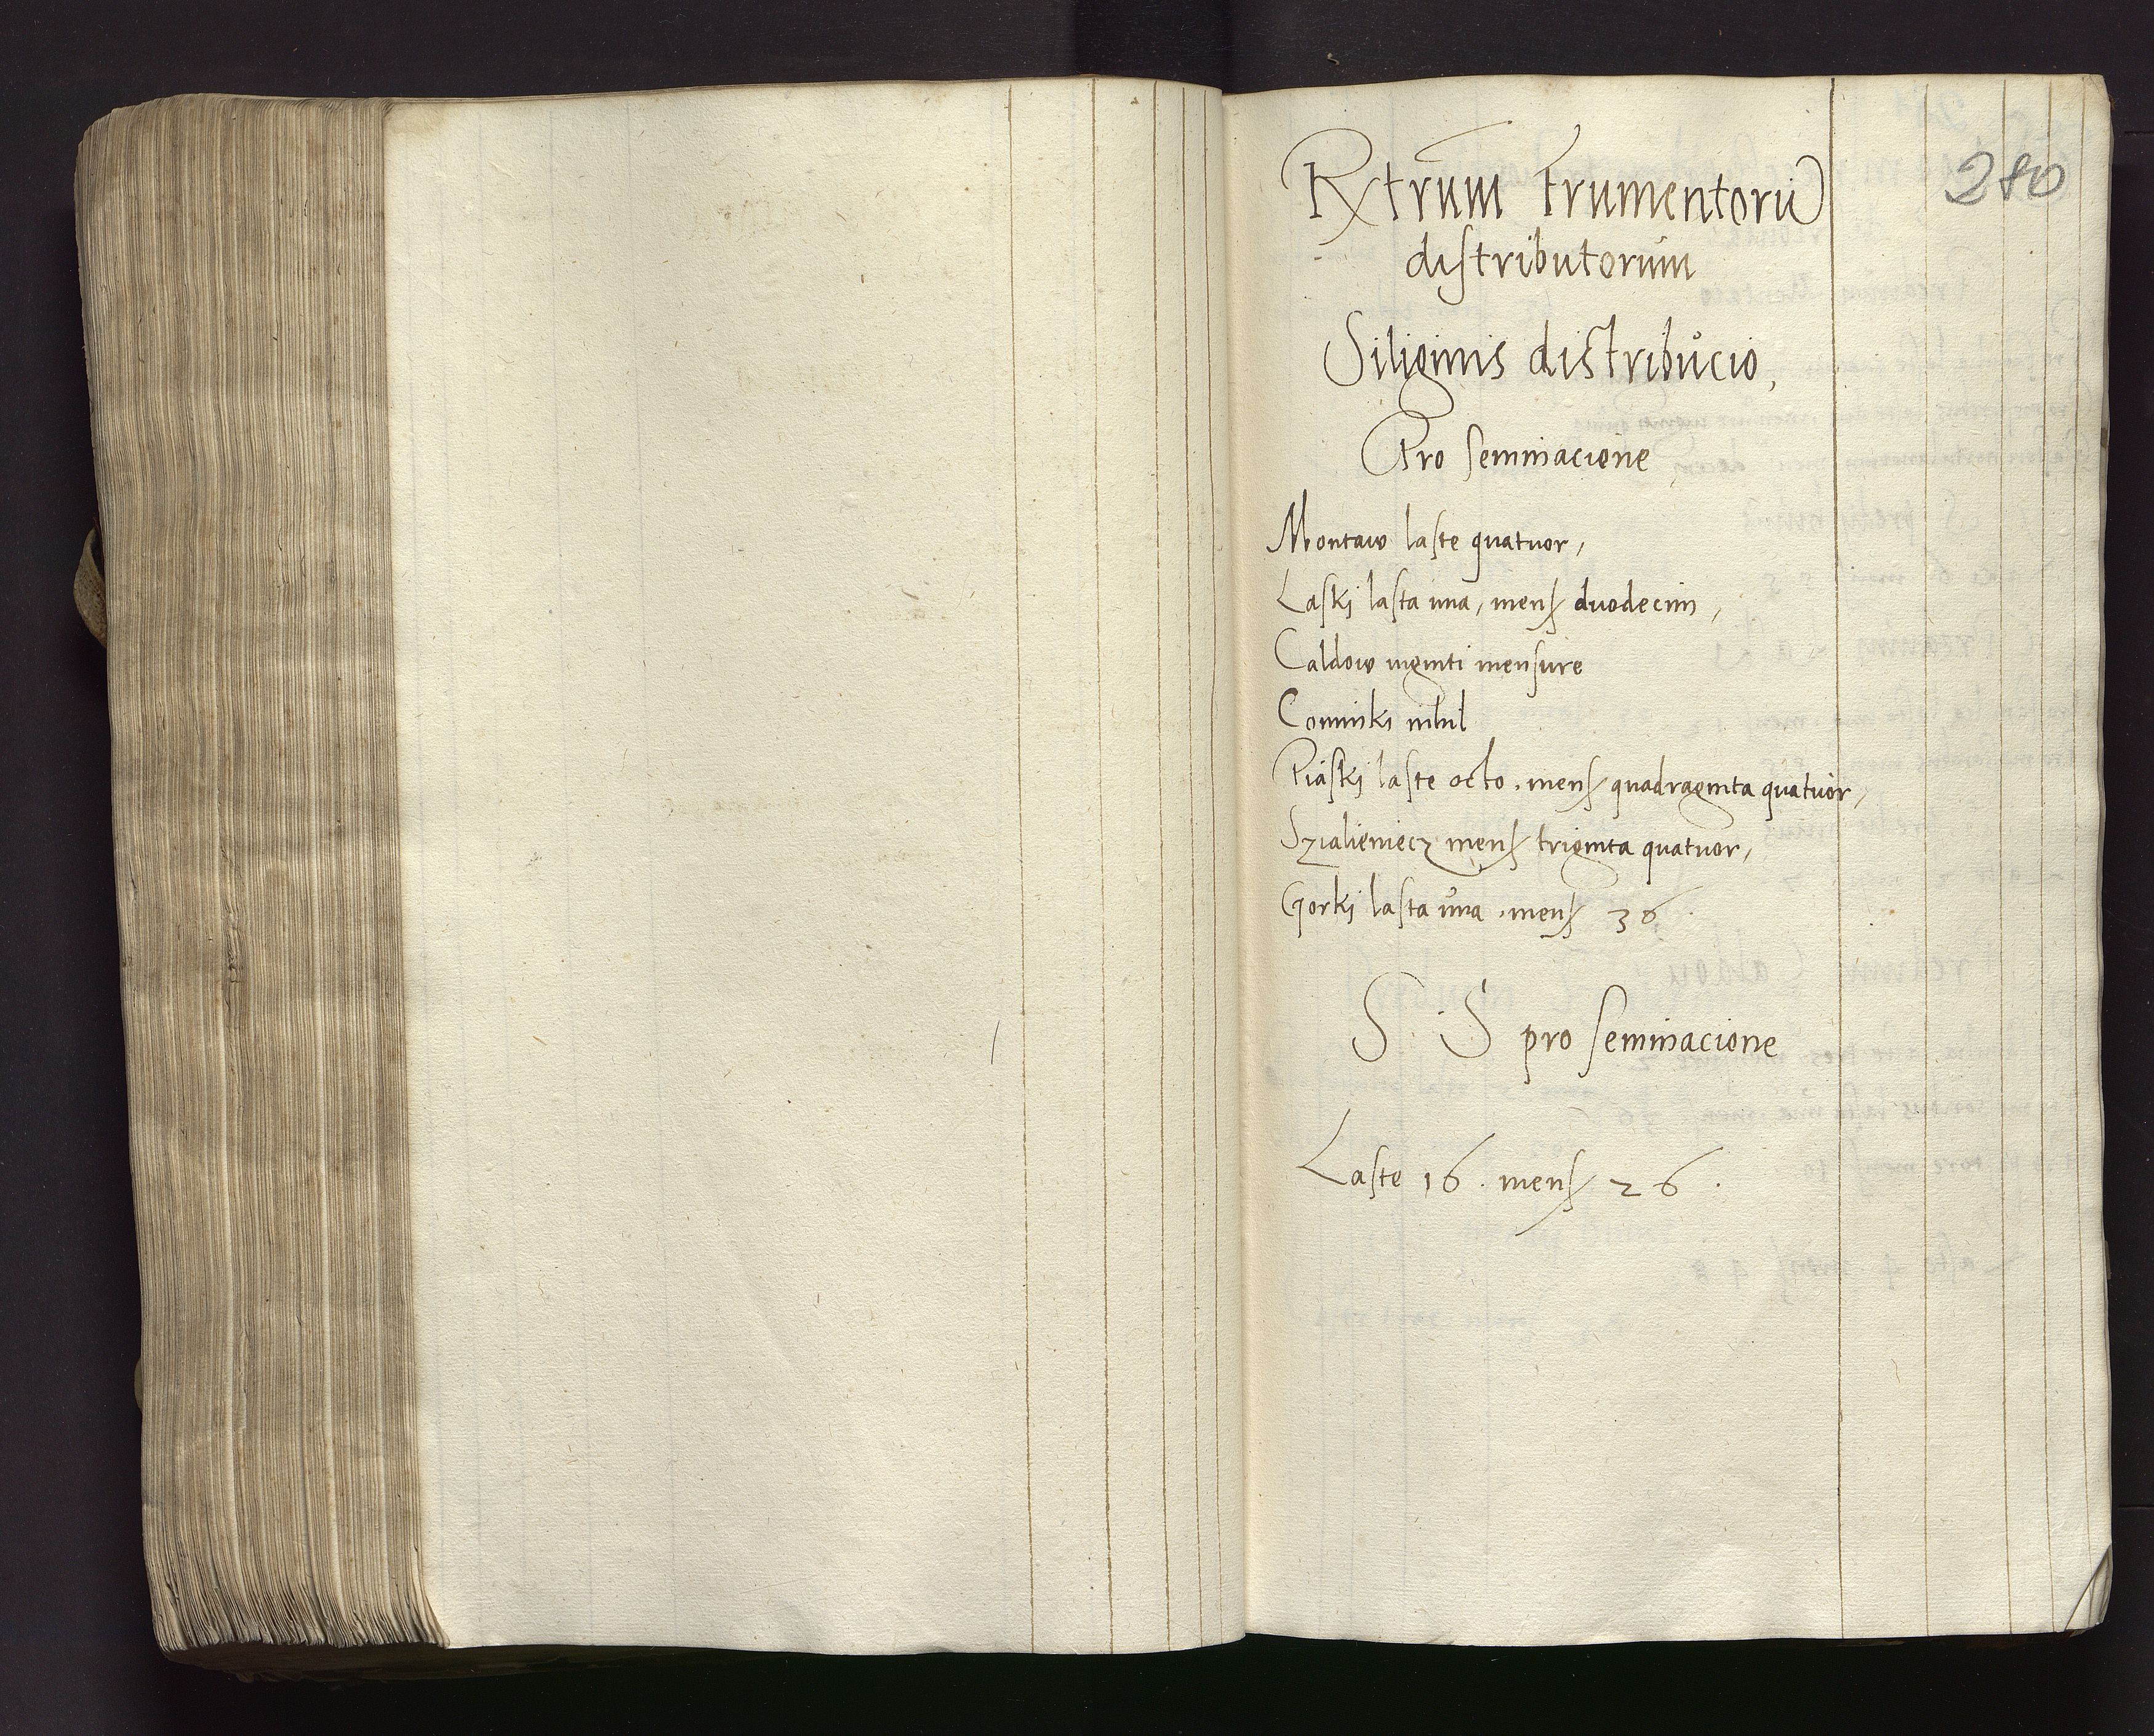 280
Rxtrum frumentorū
distributorum
Siliginis distribucio,
Pro seminacione
Montaw laste quatuor,
Laski lasta una, mens duodecim,
Caldow viginti mensure
Cominki nihil
Piaski laste octo. mens quadraginta quatuor,
Szialieniecz mens triginta quatuor,
Gorki lasta una. mens 36.
S S pro seminacione
Laste 16. mens 26.